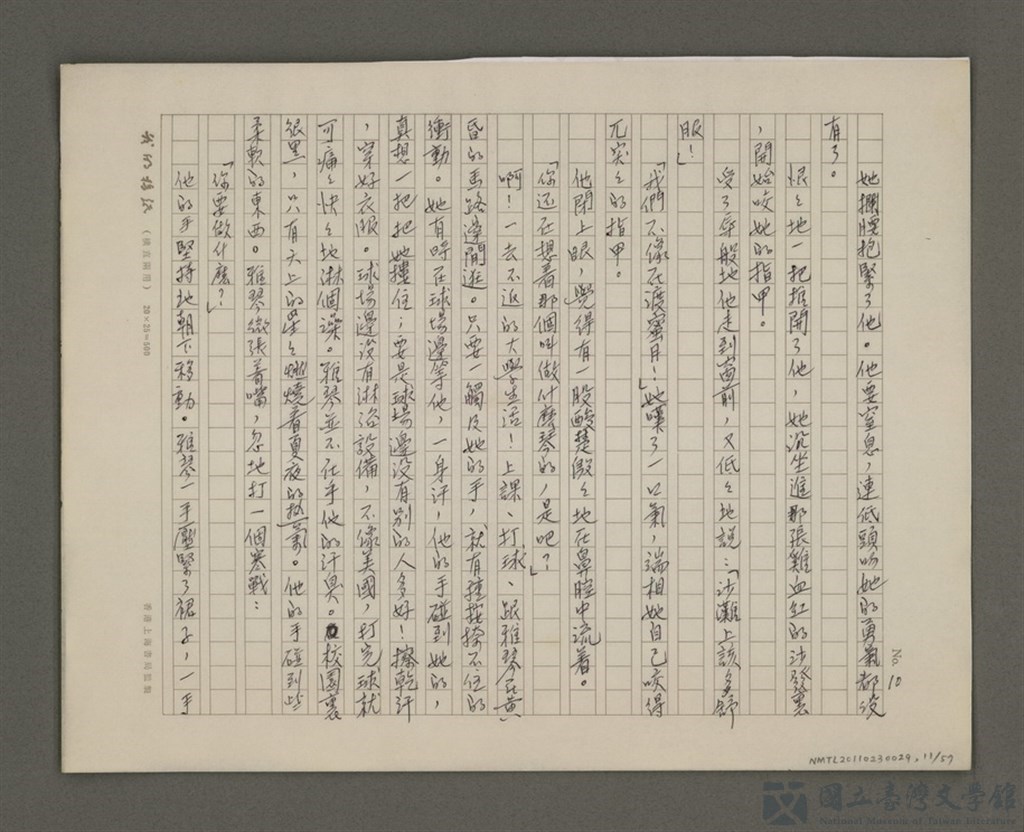 No. 10
她攔腰抱緊了他。他要窒息,連低頭吻她的勇氣都沒
有了。
恨々地一把推開了他,她沉坐進那張雞血紅的沙發裏
,開始咬她的指甲。
受了辱般地他走到窗前,又低々地說:「沙灘上該多舒
服!」
「我們不像在渡蜜月!」她嘆了一口氣,端相她自己咬得
兀突々的指甲。
他閉上眼,覺得有一股酸楚緩々地在鼻腔中流着。
「你还在想着那個叫做什麼琴的,是吧?」
啊!一去不返的大學生活!上課、打球、跟雅琴在黃
昏的馬路邊閒逛。只要一觸及她的手,就有種按捺不住的
衝動。她有時在球場邊等他,一身汗,他的手碰到她的,
真想一把把她摟住;要是球場邊沒有別的人多好!擦乾汗
,穿好衣服。球場邊沒有淋浴設備,不像美國,打完球就
可痛々快々地淋個澡。雅琴並不在乎他的汗臭。校園裏
很黑,只有天上的星々燃燒着夏夜的熱氣。他的手碰到些
柔軟的東西。雅琴微張着嘴,忽地打一個寒戰:
「你要做什麼?」
他的手堅持地朝下移動。雅琴一手壓緊了裙子,一手
(橫直兩用) 20×25=500
香港上海書局監製
NMTL20110230029, 11/57
國立臺灣文學館
National Museum of Taiwan Literature